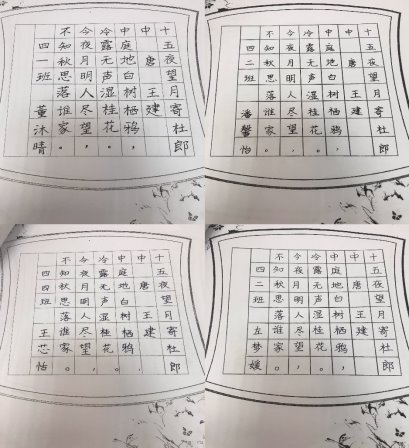 十五夜望月寄杜郎
中唐王建
中庭地白树栖鸦，
冷露无声湿桂花。
今夜月明人尽望，
不知秋思落谁家。
四一班董沐晴
十五夜望月寄杜郎
中唐王建
中庭地白树栖鸦，
冷露无声湿桂花。
今夜月明人尽望，
不知秋思落谁家。
四二班潘馨怡
十五夜望月寄杜郎
中唐王建
中庭地白树栖鸦，
冷露无声湿桂花。
今夜月明人尽望，
不知秋思落谁家。
四四班王芯怡
十五夜望月寄杜郎
中唐王建
中庭地白树栖鸦，
冷露无声湿桂花。
今夜月明人尽望，
不知秋思落谁家。
四二班左梦媛